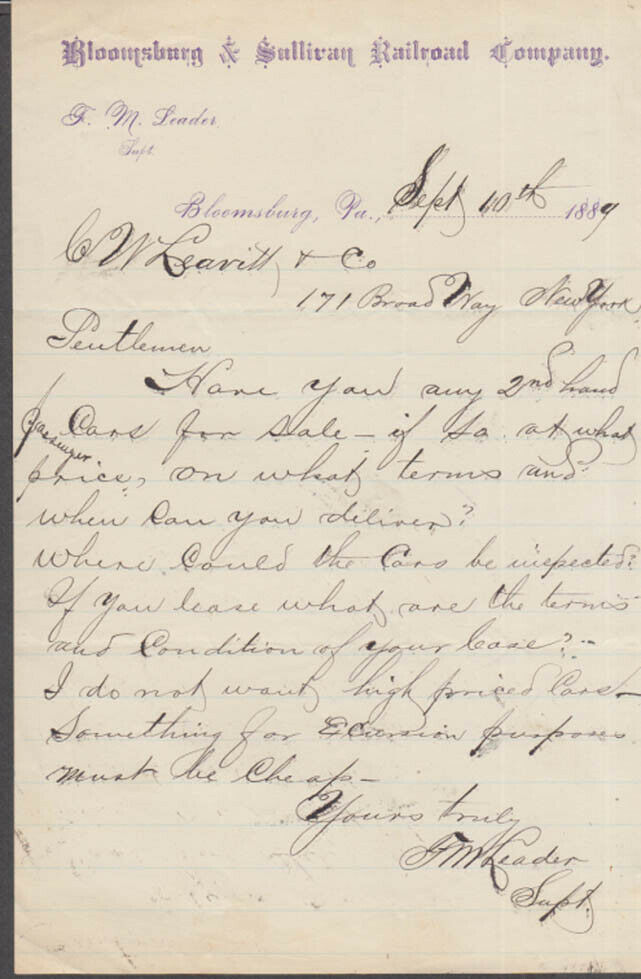 Bloomsburg & Sullivan Railroad Company.
F. M. Leader
Supt.
Bloomsburg, Pa., Sept 10th 1889
C W Leavitt & Co
171 Broad Way New York
Gentlemen
Have you any 2nd hand
passenger Cars for Sale - if so at what
price, on what terms and
when can you deliver?
Where could the Cars be inspected?
If you lease what are the terms
and Condition of your lease? -
I do not want high priced Cars -
Something for Ecursion purposes
must be Cheap -
Yours truly
F M Leader
Supt.